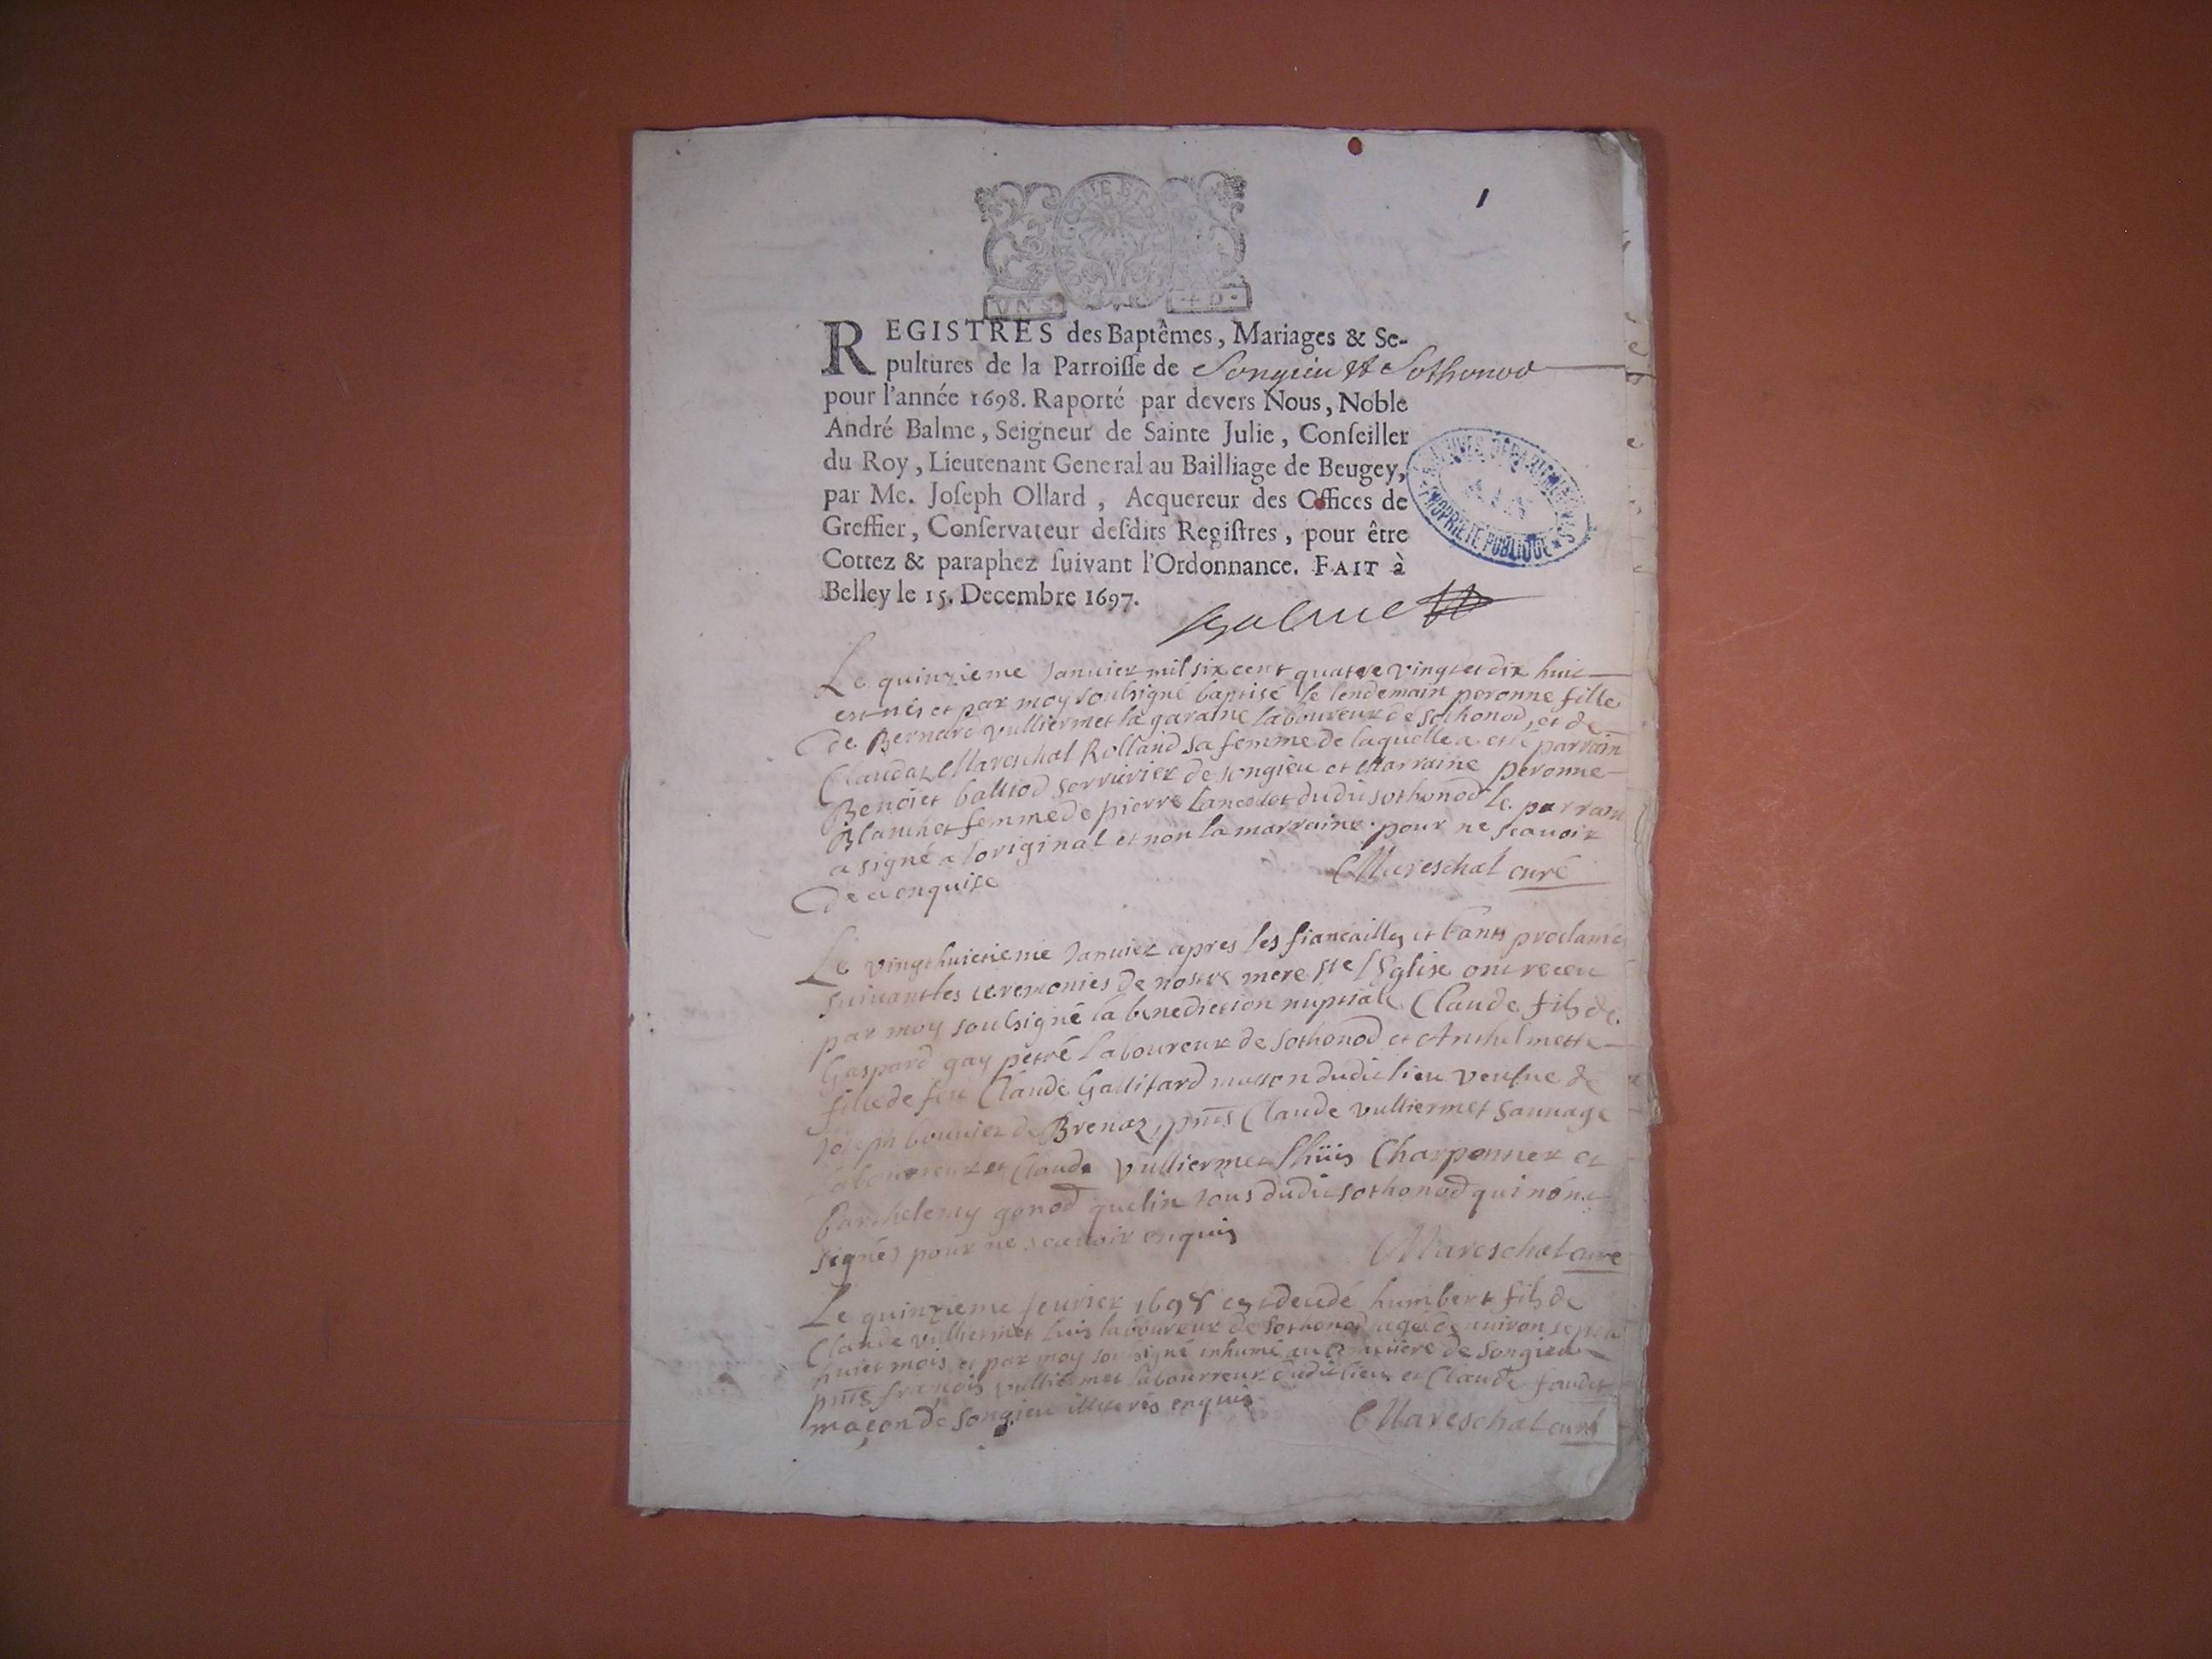 1
VNS
REGISTRES des Baptêmes, Mariages & Se-
pultures de la Parroiſſe de Songieu et Sothonod
pour l'année 1698. Raporté par devers Nous, Noble
André Balme, Seigneur de Sainte Julie, Conſeiller
du Roy, Lieutenant General au Bailliage de Beugey,
par Me. Joſeph Ollard, Acquereur des Offices de
Greffier, Conſervateur deſdits Regiſtres, pour être
Cottez & paraphez ſuivant l'Ordonnance. FAIT à
Belley le 15. Decembre 1697.
PROPRIETE PUBLIQUE
Balme
Le quinzieme Januier mil six cent quatre vingt et dix huit
est née et par moy soubsigné baptisé le lendemain peronne fille
de Bernard vulliermet la garaine laboureur de sothonod, et de
Claudaz Mareschal Rolland sa femme de laquelle a esté parrain
Benoict balliod serrurier de songieu et Marraine peronne
Blanchet femme de pierre Lancelot dudit sothonod le parrain
a signé a loriginal et non la marraine pour ne scauoir
de ce enquise
Mareschal curé
Le vingthuictieme Januier apres les fiancailles et bants proclamés
suiuant les ceremonies de nostre mere ste Eglise ont receu
par moy soubsigné la benediction nuptiale Claude fils de
Gaspard gay petré laboureur de sothonod et Anthelmette
fille de feu Claude Gallifard masson dudit lieu veufue de
Joseph bouuier de Brenaz, pnts Claude vulliermet sauuage
laboureur et Claude Vulliermet Lhuis Charpentier et
barthelemy gonod quelin tous dudit sothonod qui n'ont
signés pour ne scauoir enquis
Mareschal curé
Le quinzieme feurier 1698 est decedé humbert fils de
Claude vulliermet luis laboureur de sothonod agé denuiron sept a
huict mois et par moy soubsigné inhumé au cemitiere de songieu
pnts francois vulliermet labourreur dudit lieu et Claude faudet
maçon de songieu illiterés enquis
Mareschal curé